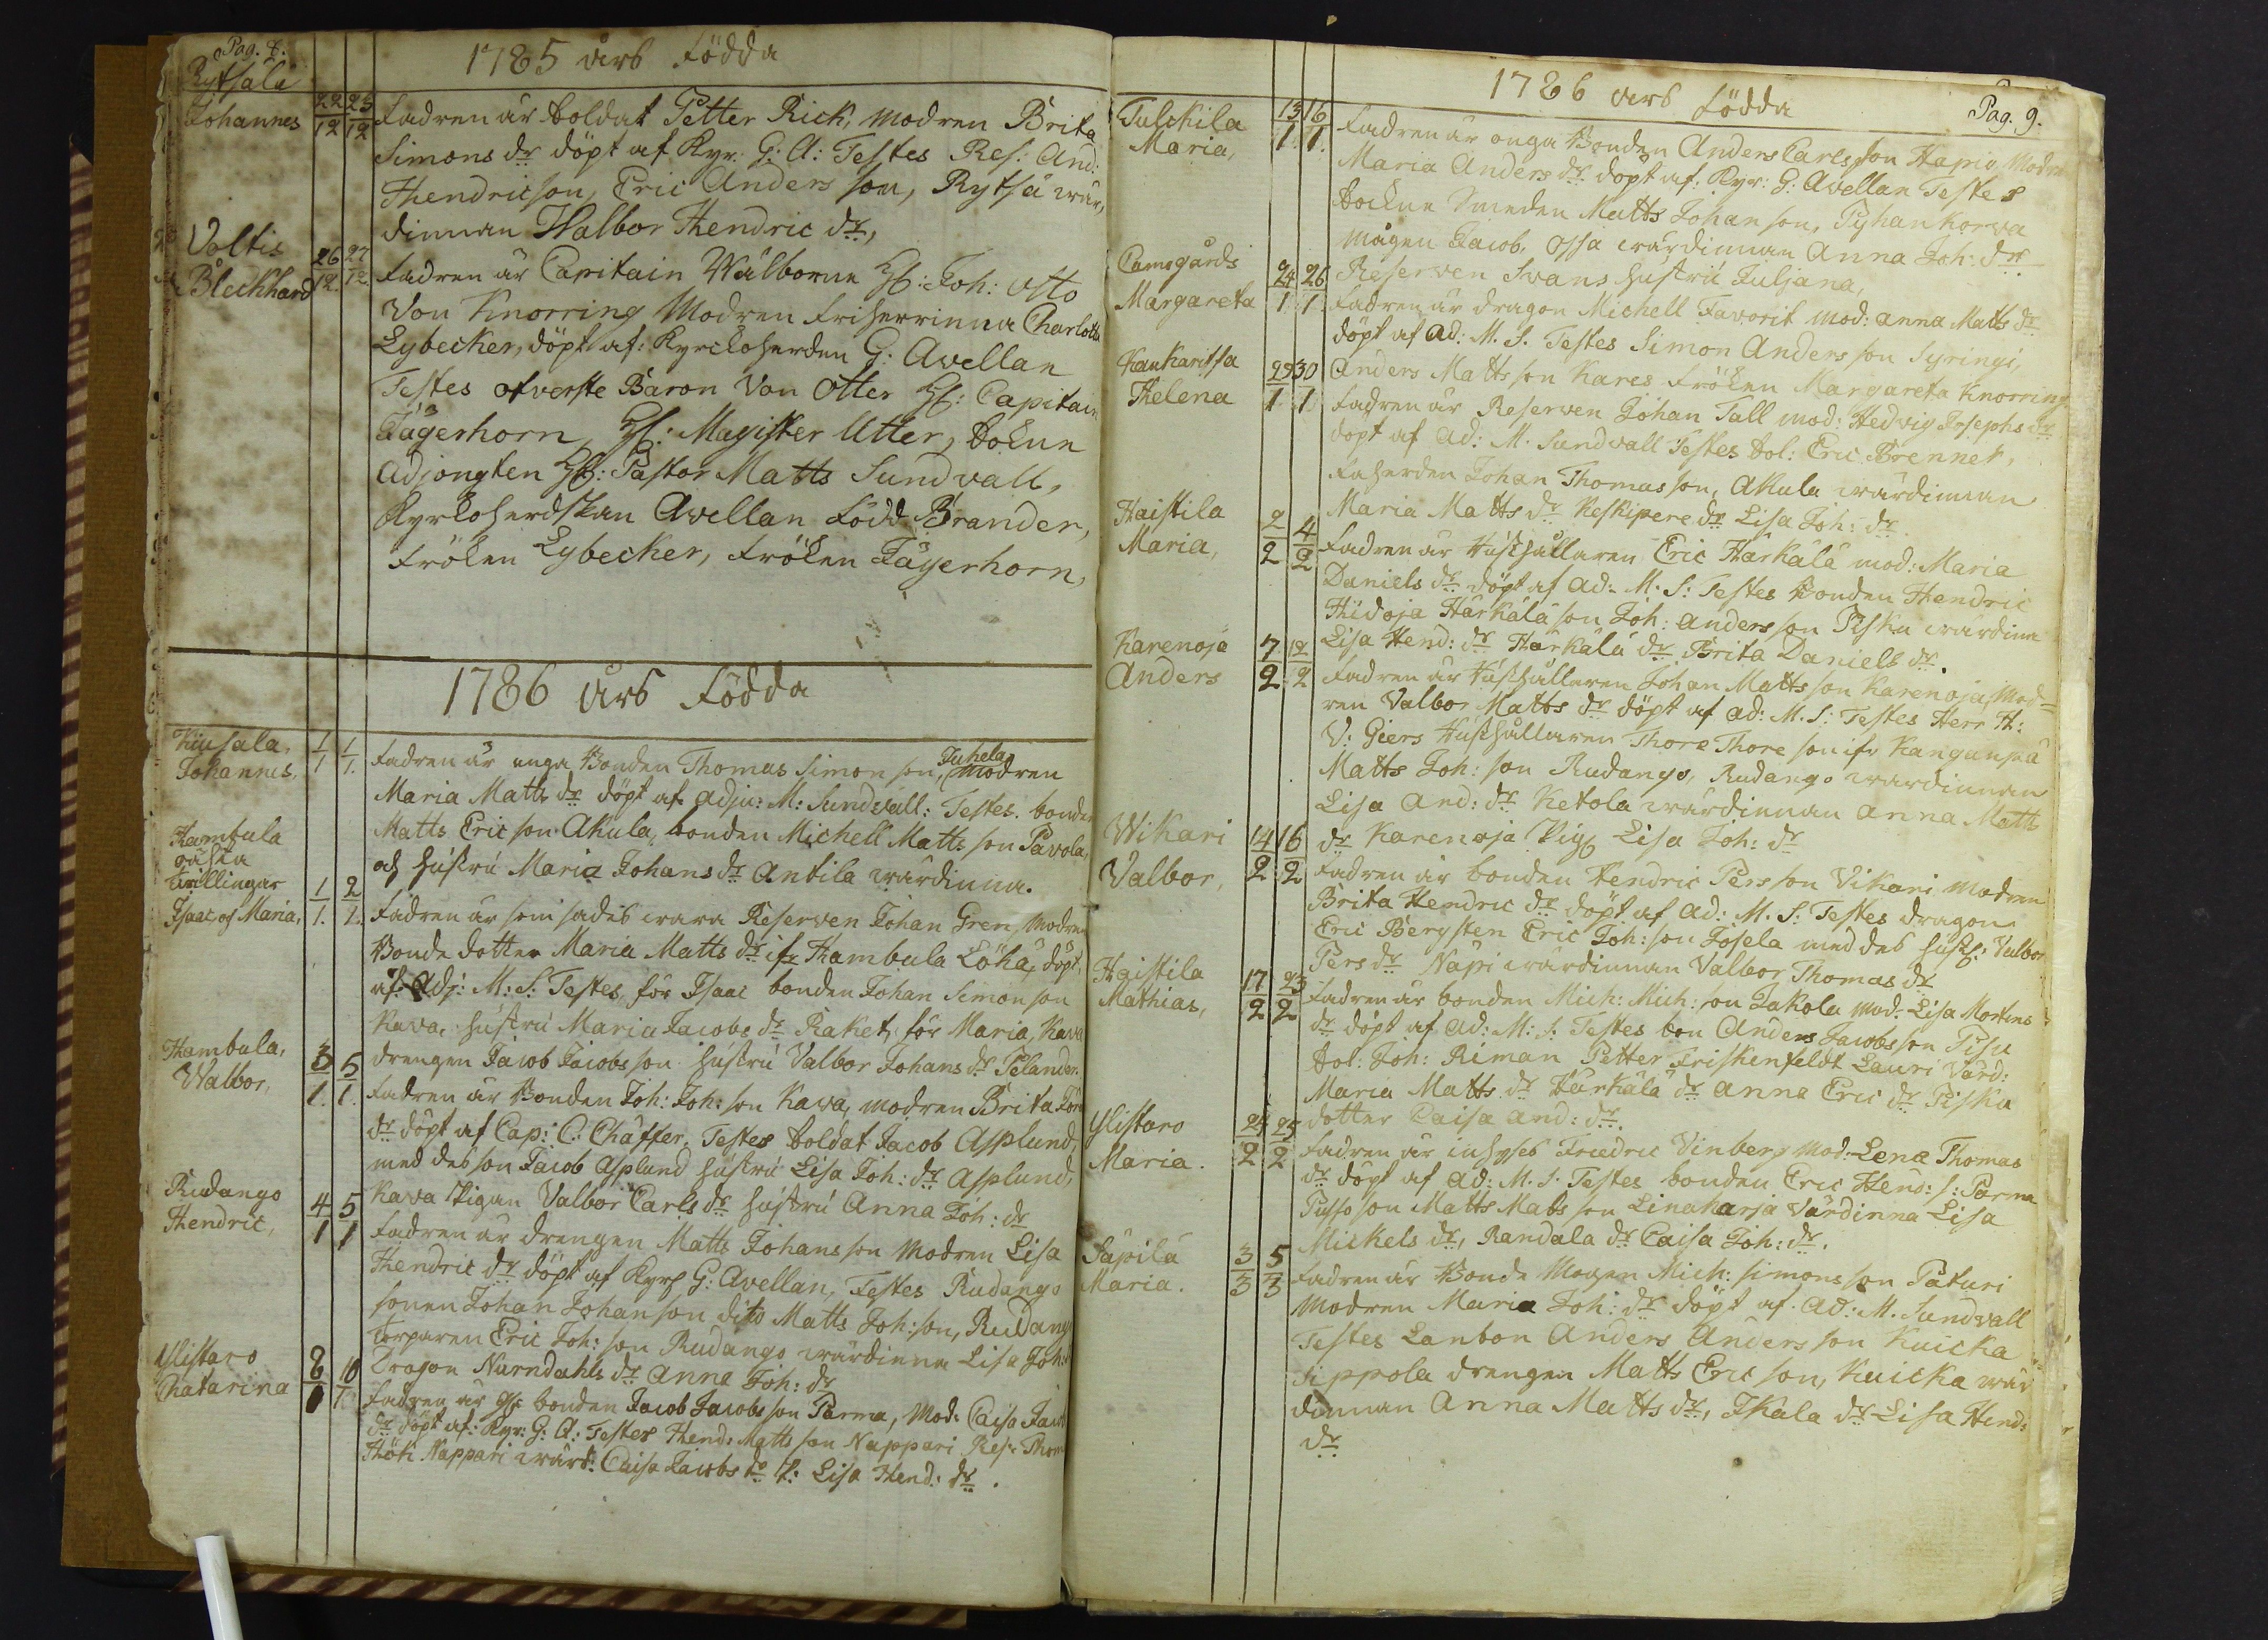 Pag. 8.
1785 års födda
Rytsälä
Johannes 22/12 23/12 fadren är Soldat Petter Rick, modren Brita
Simons dr döpt af Kyr: G: A: Testes Res: And:
Hendricson, Eric Anders son, Rytsä wär,
dinnan Walbor Hendric dr,
Voltis
Bleckhard 26/12 27/12 fadren är Capitain Wälborne H: Joh: Otto
Von Knorring Modren friherrinna Charlotta
Lybecker, döpt af: Kyrckoherden G: Avellan
Testes ofverste Baron Von Otter H: Capitain
Jägerhorn, H: Magister Utter, Sokne
adjongten H: Pastor Matts Sundvall,
Kyrkoherdskan Avellan född Brander,
fröken Lybecker, fröken Jägerhorn,
1786 års födda
Kiusala,
Johannes, 1/1 1/1. fadren är unga Bonden Thomas Simon son, Juhela, modren
Maria Matts dr döpt af adju: M: Sundvall: Testes. bonden
Matts Ericson Akula, bonden Michell Matts son Pavola,
och hustru Maria Johans dr Antila wärdinna.
Hambula
oächta
twillingar
Isaac och Maria, 1/1. 2/1. fadren är som sades wara Reserven Johan Gren, modren
Bonde dotter Maria Matts dr ifr Hambula Löhä, döpt
af adj: M: S: Testes, för Isaac bonden Johan Simon son
Kava, hustru Maria Jacobs dr Raket, för Maria, Kava
drengen Jacob Jacobs son hustru Valbor Johans dr Telander.
Hambula,
Walbor, 3/1. 5/1. fadren är Bonden Joh: Joh: son Kava, modren Brita
dr döpt af Cap: C. Chäffer. Testes Soldat Jacob Asplund,
med des son Jacob Asplund hustru Lisa Joh: dr Asplund,
Kava Pigan Valbor Carls dr hustru Anna Joh: dr
Rudango
Hendric, 4/1 5/1 fadren är drengen Matts Johans son Modren Lisa
Hendric dr döpt af Kyrh G: Avellan, Testes Rudango
sonen Johan Johanson dito Matts Joh: son, Rudang
torparen Eric Joh: son Rudango wärdinna Lisa Joh:
Dragon Narndahls dr Anna Joh: dr
Ylistaro
Chatarina 8/1 10/1. fadren är bonden Jacob Jacobs son Parma, Mod: Caisa Jacob
dr döpt af: Kyr: G: A: Testes Hend: Matts son Nappari Res: Thom
Höki Nappari wärd: Caisa Jacobs dr P: Lisa Hend: dr.
1786 års födda
Pag. 9.
Tulckila
Maria, 13/1. 16/1. fadren är unga Bonden Anders Carlsson Hapio, modren
Maria Anders dr döpt af: Kyr: G: Avellan Testes
Sockne Smeden Matts Johan son, Pyhankorva
mågen Jacob, Ossa wärdinnan Anna Joh: dr
Reserven Swans hustru Juljana,
Camsgårds
Margareta 24/1 26/1 fadren är dragon Michell Favorit mod: Anna Matts dr
döpt af Ad: M. S. Testes Simon Anders son Syringi,
Anders Matts son Kares fröken Margareta Knorring
Kankaritsa
Helena 29/1. 30/1. fadren är Reserven Johan Tall mod: Hedvig Josephs dr
döpt af Ad: M. Sundvall Testes Sol: Eric Brenner,
faherden Johan Thomas son, Akula wärdinnan
Maria Matts dr Keskipere dr Lisa Joh: dr.
Haistila
Maria, 2/2 4/2 fadren är Hushållaren Eric Härkälä mod: Maria
Daniels dr döpt af Ad: M. S: Testes Bonden Hendric
Hiidoja Härkälä son Joh: Anders son Piska wärdinn
Lisa Hend: dr Härkälä dr Brita Daniels dr.
Karenoja
Anders 7/2 12/2 fadren är Hushållaren Johan Matts son Karenoja, mod=
ren Valbor Matts dr döpt af Ad: M. S: Testes Herr H:
V: Giers Hushållaren Thore Thore son ifr Kanganpä
Matts Joh: son Rudango, Rudango wärdinnan
Lisa And: dr Ketola wärdinnan Anna Matts
dr Karenoja Pig Lisa Joh: dr
Wikari
Valbor, 14/2 16/2 fadren är bonden Hendric Pers son Vikari modren
Brita Hendric dr döpt af Ad: M. S: Testes dragon
Eric Bergsten Eric Joh: son Josela med des hust: Valbor
Pers dr Näpi wärdinnan Valbor Thomas dr
Haistila
Mathias, 17/2 23/2 fadren är bonden Mich: Mich: son Jakola mod: Lisa Mortens
dr döpt af Ad: M: S. Testes bon Anders Jacobs son Pisu
Sol: Joh: Riman Petter Friskenfeldt Lauri Värd:
Maria Matts dr Härkälä dr Anna Eric dr Piska
dotter Caisa And: dr.
Ylistaro
Maria. 24/2 25/2 fadren är inhyses Friedric Vinberg mod: Lena Thomas
dr döpt af Ad: M. S. Testes bonden Eric Hend: s: Parma
Pusso son Matts Mats son Linaharja Värdinna Lisa
Mickels dr, Randala dr Caisa Joh: dr.
Säpilä
Maria. 3/3 5/3 fadren är Bonde Mågen Mich: Simons son Paturi
Modren Maria Joh: dr döpt af Ad: M. Sundvall
Testes Lanbon Anders Anders son Kuicka
Sippola drengen Matts Eric son, Kuicka wär
dinnan Anna Matts dr, Ikala dr Lisa Hend:
dr